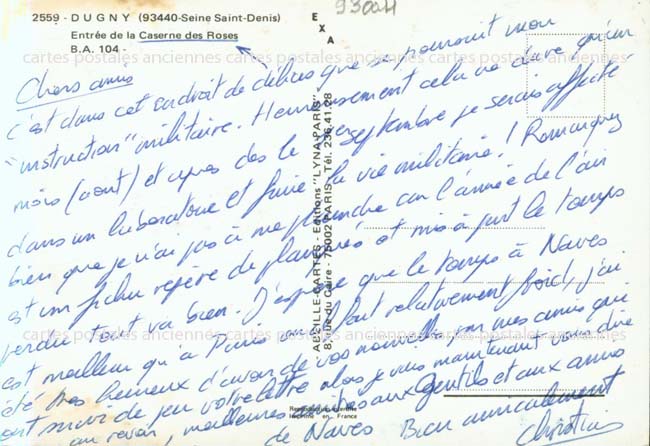 2559 - DUGNY (93440-Seine Saint-Denis)
Entrée de la Caserne des Roses
B.A. 104 -
93004
EXA
cartes postales anciennes cartes postales anciennes cartes postales anciennes
Chers amis
c'est dans cet endroit de délices que se poursuit mon
"instruction" militaire. Heureusement cela va durer qu'un
mois (août) et après dès le 1er septembre je serais affecté
dans un laboratoire et finie la vie militaire! Remarquez
bien que je n'ai pas à me plaindre car l'armée de l'air
est un fichu repère de planqués et mis à part le temps
perdu tout va bien. J'espère que le temps à Naves
est meilleur qu'à Paris où il fait relativement froid, j'ai
été très heureux d'avoir de vos nouvelles par mes amis qui
ont suivi de peu votre lettre alors je vais maintenant vous dire
au revoir, meilleures aux Gentils et aux amis
de Naves Bien amicalement
Christian
ABEILLE-CARTES - Editions "LYNA-PARIS"
8, rue du Caire - 75002 PARIS Tél. 236.41.28
Reproduction interdite
Imprimé en France
cartes postales anciennes cartes postales anciennes cartes postales anciennes